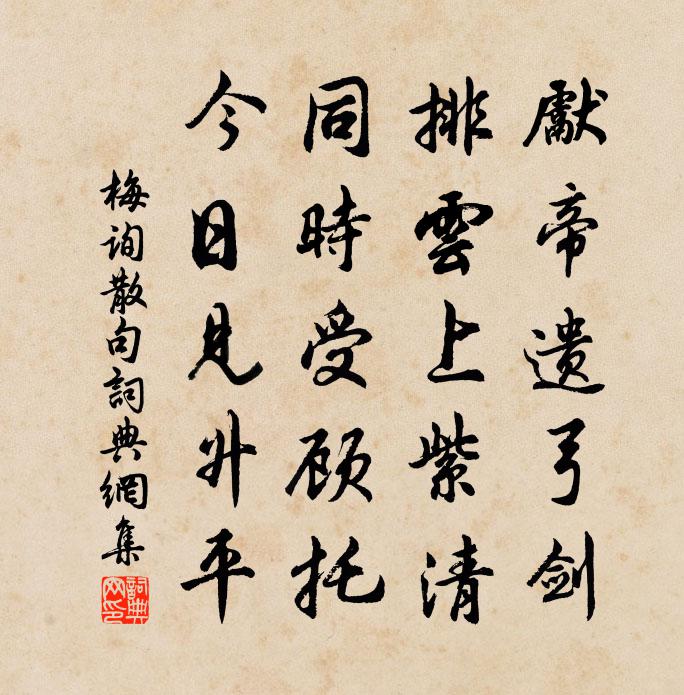 獻帝遗弓剑
排雲上紫清
同時受顾托
今日見升平
梅询散句詞典網集
詞典网印